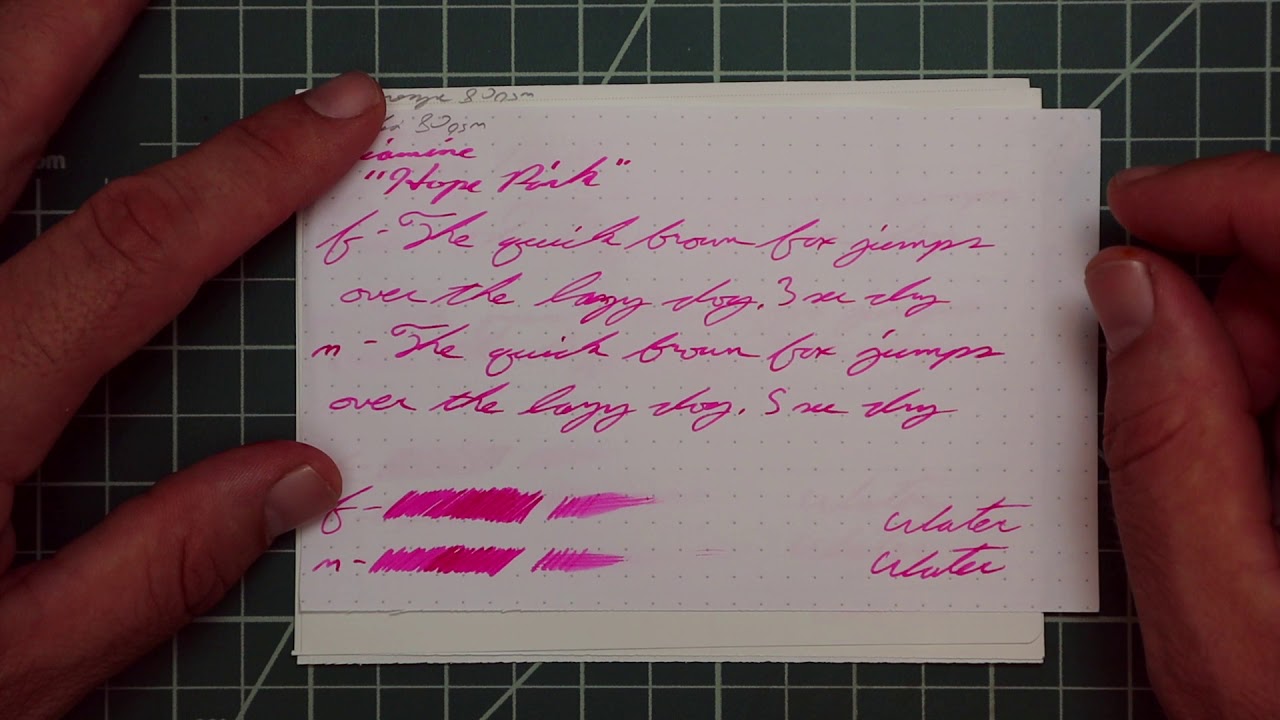 80gsm
80gsm
iamine
"Hope Pink"
f - The quick brown fox jumps
over the lazy dog. 3 sec dry
m - The quick brown fox jumps
over the lazy dog. 5 sec dry
f -
Water
m -
Water